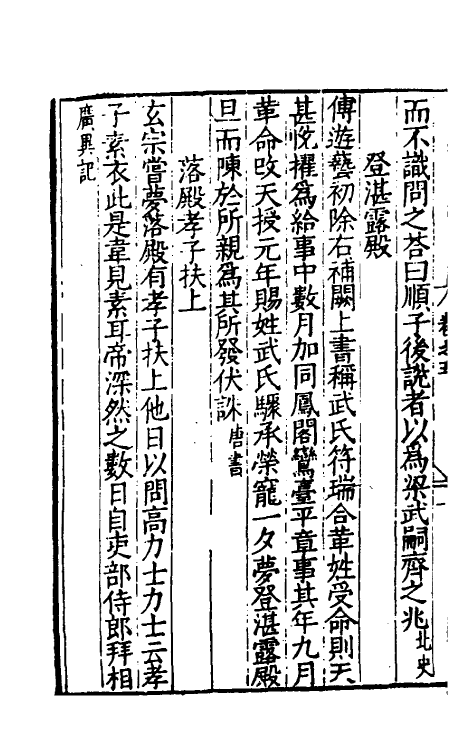 而不識問之荅曰順子後說者以為梁武嗣齊之兆北史
登湛露殿
傅遊藝初除右補闕上書稱武氏符瑞合革姓受命則天
甚悅擢為給事中數月加同鳳閣鸞臺平章事其年九月
革命改天授元年賜姓武氏驟承榮寵一夕夢登湛露殿
旦而陳於所親為其所發伏誅唐書
落殿孝子扶上
玄宗嘗夢落殿有孝子扶上他日以問高力士力士云孝
子素衣此是韋見素耳帝深然之數日自吏部侍郎拜相
廣異記